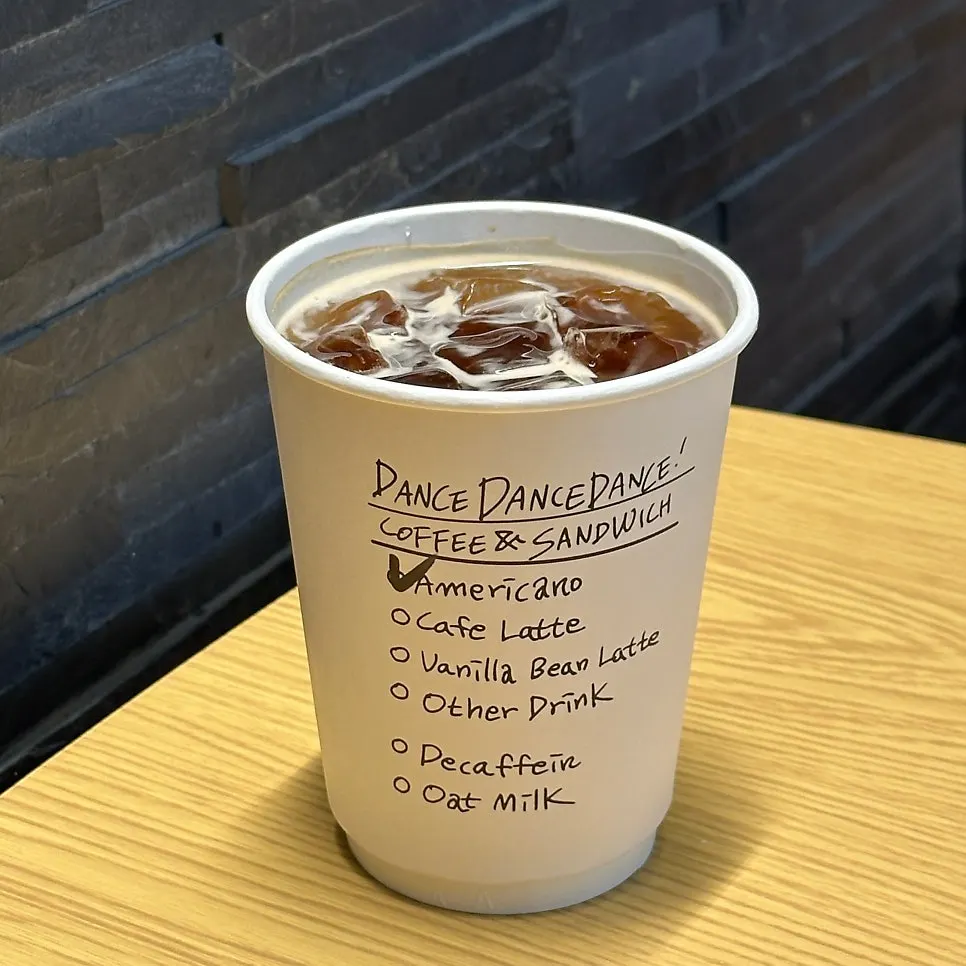 DANCE DANCE DANCE!
COFFEE & SANDWICH
Americano
Cafe Latte
Vanilla Bean Latte
Other Drink
Decaffein
Oat Milk